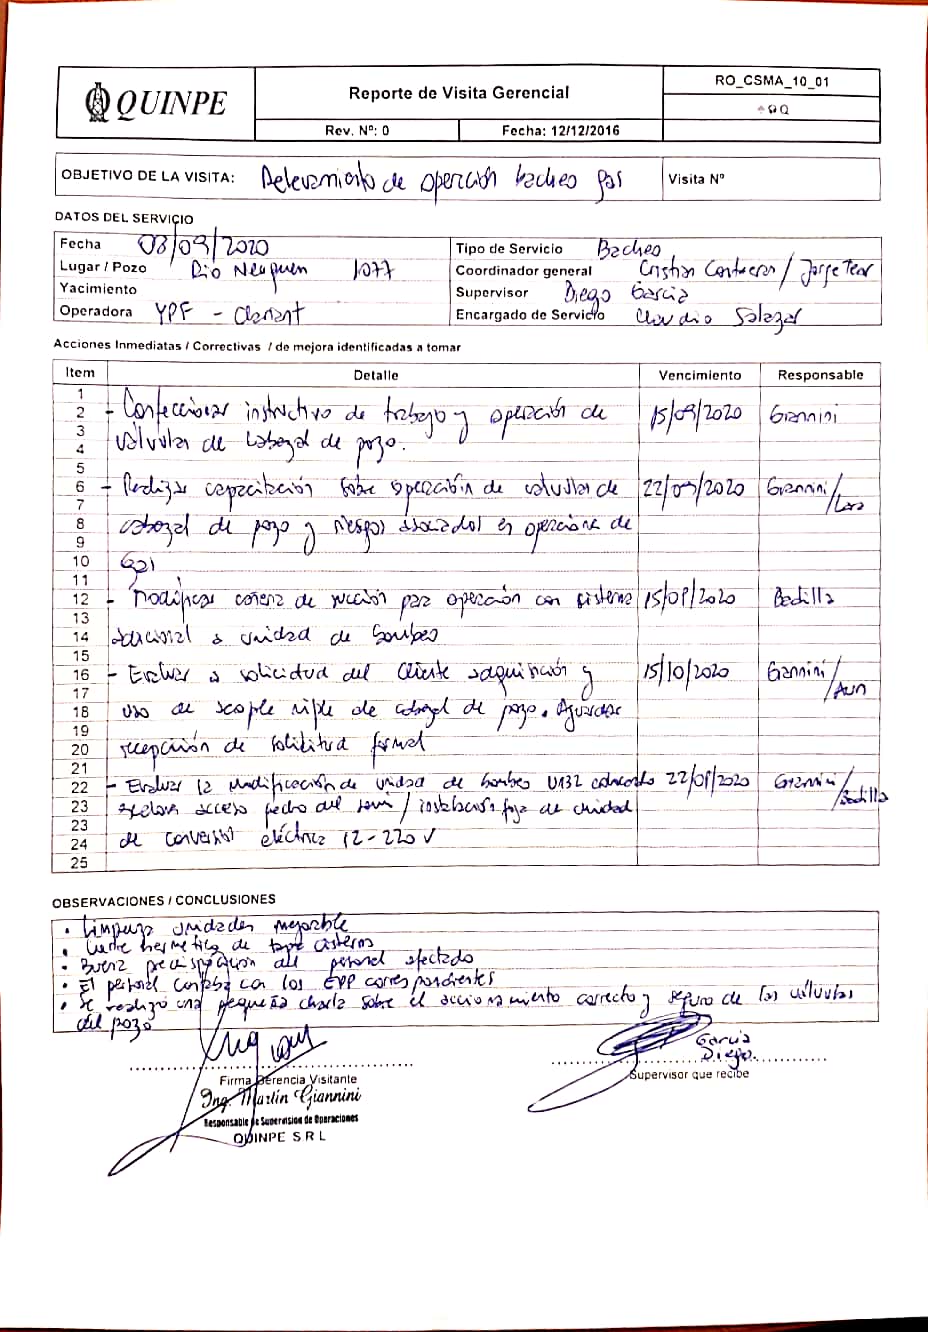 QUINPE
Reporte de Visita Gerencial
RO_CSMA_10_01
Rev. Nº: 0
Fecha: 12/12/2016
OBJETIVO DE LA VISITA: Relevamiento de operación bacheo gas
Visita N°
DATOS DEL SERVICIO
Fecha 03/09/2020
Tipo de Servicio Bacheo
Lugar / Pozo Rio Neuquen 1077
Coordinador general Cristian Contreras / Jorge
Yacimiento
Supervisor Diego Garcia
Operadora YPF - Clariant
Encargado de Servicio Claudio Salazar
Acciones Inmediatas / Correctivas / de mejora identificadas a tomar
Item Detalle Vencimiento Responsable
1
2 - Confeccionar instructivo de trabajo y operación de 15/09/2020 Giannini
3
4 válvulas de cabezal de pozo.
5
6 - Realizar capacitación sobre operación de valvulas de 22/09/2020 Giannini/
7
8 cabezal de pozo y riesgos asociados en operaciones de
9
10 gas
11
12 - Modificar de succión para operación con sistema 15/09/2020 Badilla
13
14 adicional a unidad de bombeo
15
16 - Evaluar a solicitud del cliente adquisición y 15/10/2020 Giannini/
17 Aun
18 uso de acople niple de cabezal de pozo. Aguardar
19
20 recepción de solicitud formal
21
22 - Evaluar la modificación de unidad de bombeo U132 22/09/2020 Giannini/
23 acceso techo del / instalación fija de unidad Badilla
23
24 de conversor eléctrica 12-220 V
25
OBSERVACIONES / CONCLUSIONES
• Limpieza unidades mejorable
• Cierre hermético de tapa cisterna
• Buena predisposición del personal afectado
• El personal contaba con los EPP correspondientes
• Se realizó una pequeña charla sobre el accionamiento correcto y seguro de las válvulas
del pozo
Garcia
Diego.
Firma Gerencia Visitante
Supervisor que recibe
Ing. Martín Giannini
Responsable de Supervisión de Operaciones
QUINPE S R L